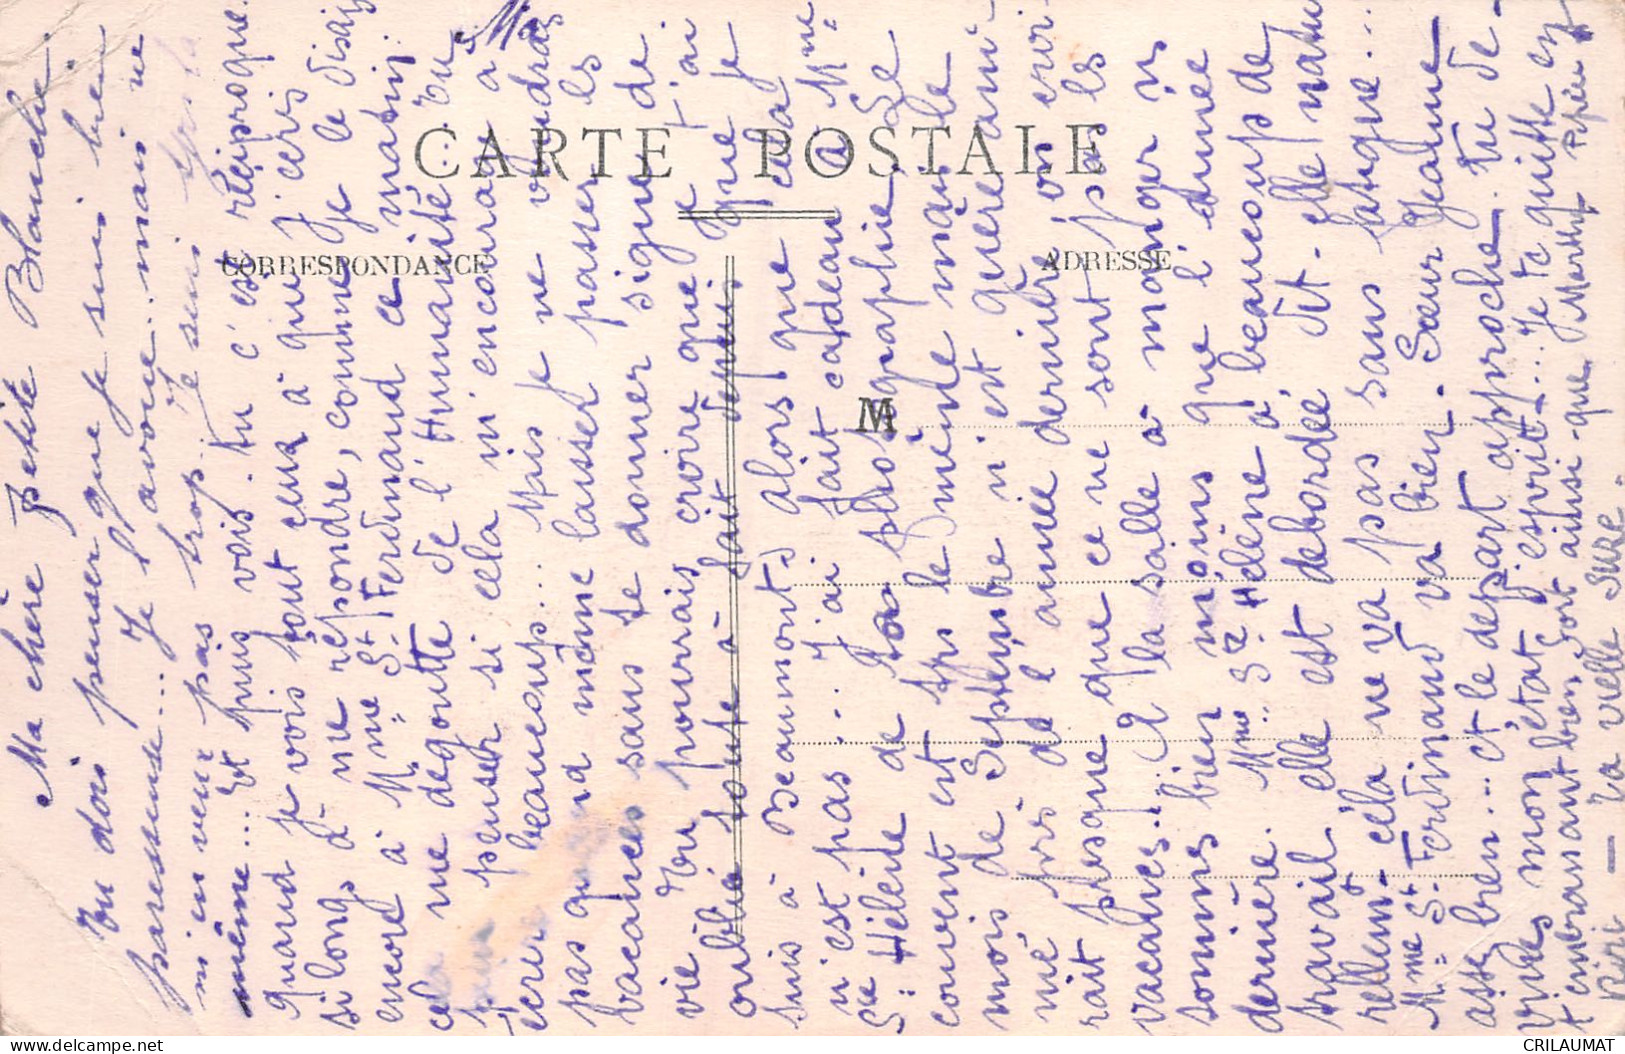 CARTE POSTALE
CORRESPONDANCE
ADRESSE
M
Ma chère petite Blanche.
Tu dois penser que je suis bien
paresseuse... Je l'avoue. mais ne
m'en veux pas trop. Je suis
même... Et puis vois-tu c'est réciproque.
Quand je vois tout ceux à qui j'écris
si longs à me répondre, comme je le disais
encore à Mme St Ferdinand ce matin:
cela me dégoutte de l'Humanité. Tu
penser si cela m'encourage à
t'écrire beaucoup... Mais je ne voudrais
pas quand même laisser passer les
vacances sans te donner signe de
vie. Tu pourrais croire que je t'ai
oublié toute à fait depuis que je
suis à Beaumont, alors que cela
n'est pas... J'ai fait cadeau à Mme
Ste Hélène de la photographie. Le
couvent est tjs le même mais le
mois de Septembre n'est guère ani-
mé près de l'année dernière, on croi-
rait presque que ce ne sont pas les
vacances. A la salle à manger ns
sommes bien moins que l'année
dernière. Mme Ste Hélène a beaucoup de
travail elle est débordée dit-elle natu
rellemt cela ne va pas sans fatigue...
Mme St Ferdinand va bien. Sœur Jeanne
assez bien... et le départ approche. tu de-
vines mon état d'esprit... Je te quitte en
t'embrassant bien fort ainsi que Marthe Pépée
Riri - Ta vielle SURE.
CRILAUMAT